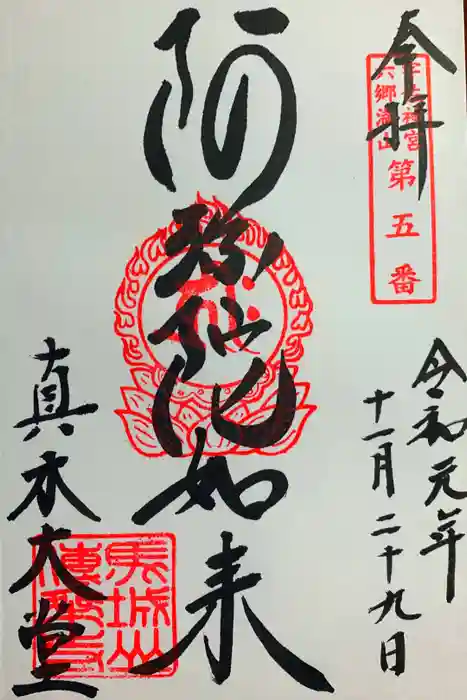 今拝
宇佐神宮
六郷満山
第五番
令和元年
十一月二十九日
阿弥陀如来
真木大堂